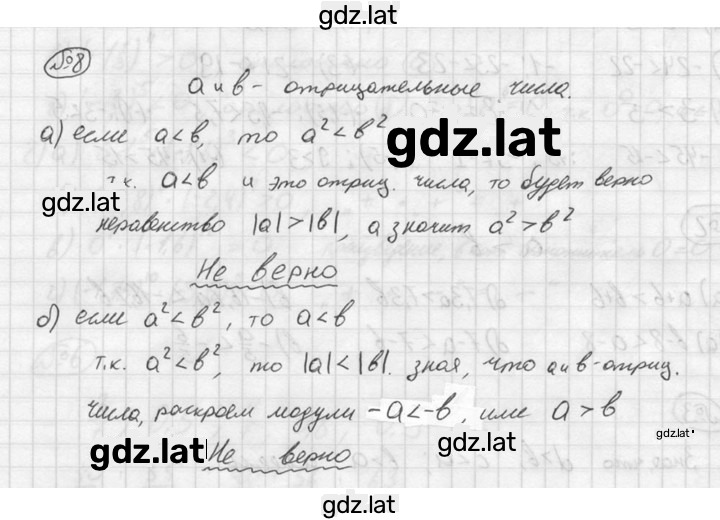 gdz.lat
№8
a и b - отрицательные числа.
а) если a<b, то a²<b²
gdz.lat
т.к. a<b и это отриц. числа, то будет верно
gdz.lat
неравенство |a|>|b|, а значит a²>b²
Не верно
б) если a²<b², то a<b
т.к. a²<b², то |a|<|b|. зная, что a и b - отриц.
числа, раскроем модули -a<-b, или a>b
gdz.lat
gdz.lat
gdz.lat
Не верно
gdz.lat